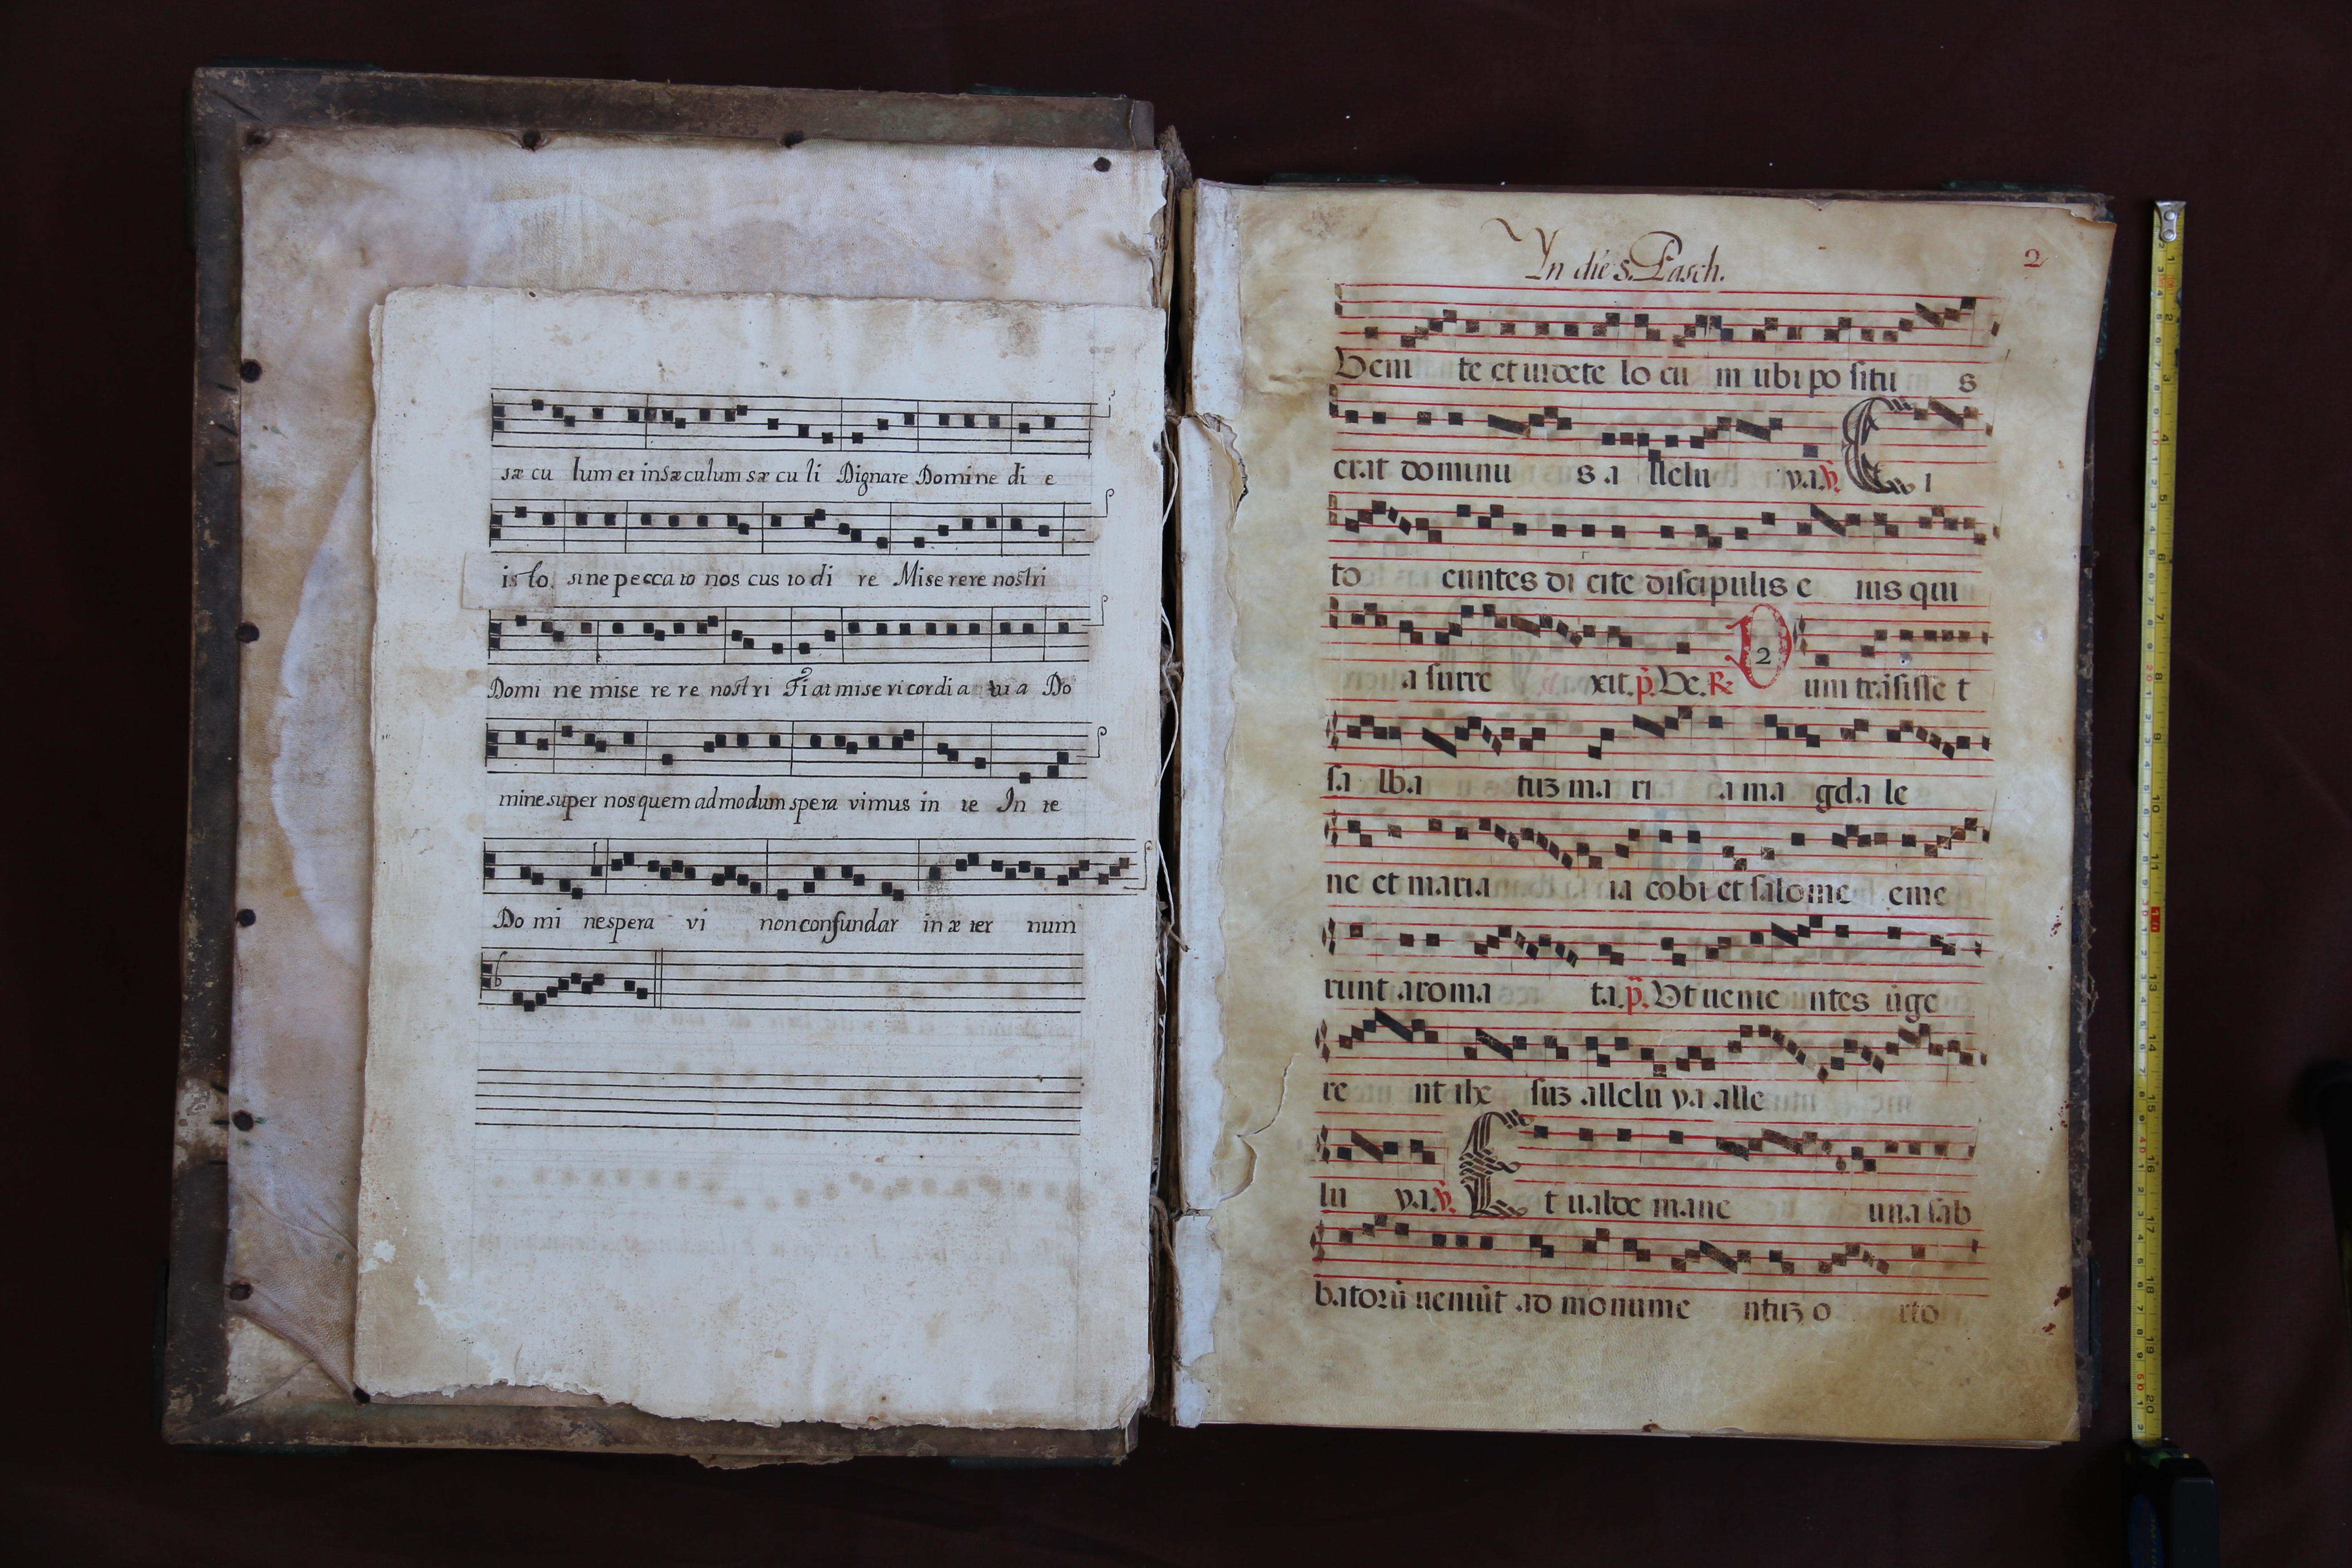 sæ cu lum et in sæculum sæ cu li Dignare Domine di e
is to. sine pecca to nos cus to di re Mise rere nostri
Domi ne mise re re nostri Fi at mise ri cordi a tu a Do
mine super nos quem admodum spera vimus in te In te
Do mi ne spera vi non confundar in æ ter num
In die s. Pasch.
2
Ueni te et uidete lo cu m ubi po situ s
erat dominu s a llelu ya. ℣. C i
to euntes di cite discipulis e ius qui
a surre xit. p̃. Ue. ℟. D 2 um trãsisse t
sa bba tuʒ ma ri a ma gda le
ne et maria ia cobi et salome eme
runt aroma ta. p̃. Ut uenie ntes ũge
re nt ihe suʒ allelu ya alle
lu ya. ℣. E t ualde mane una sab
batorũ ueniũt ad monume ntuʒ o rto